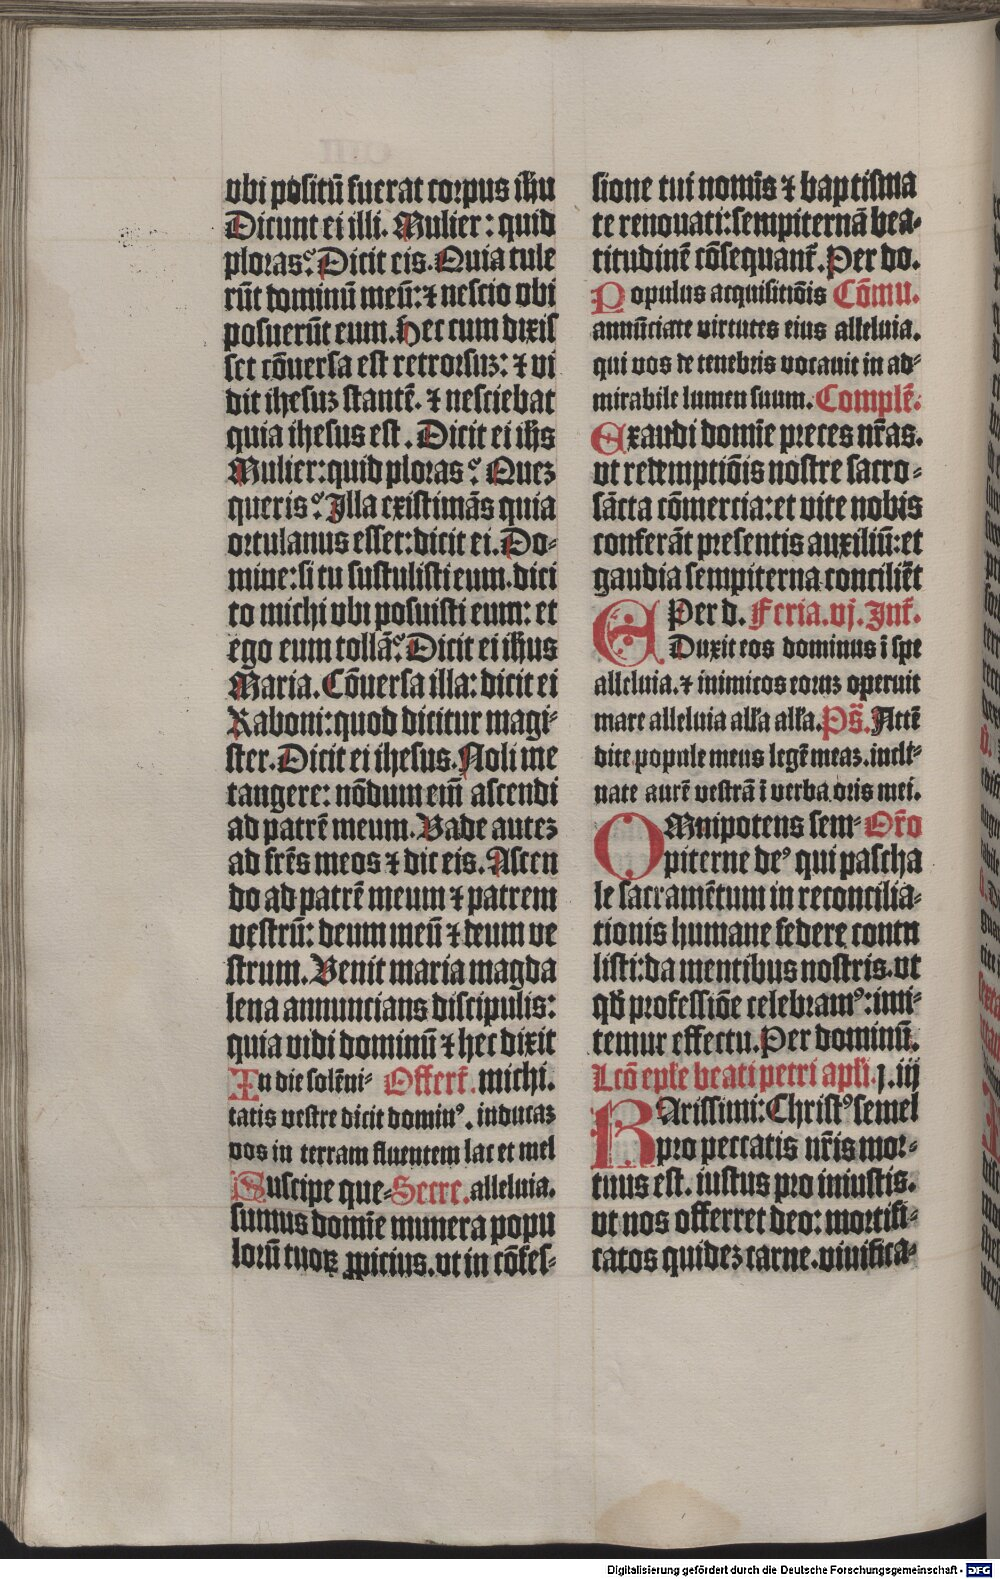 vbi positū fuerat corpus ih̄u
Dicunt ei illi. Mulier: quid
ploras? Dicit eis. Quia tule
rūt dominū meū: ⁊ nescio vbi
posuerūt eum. Hec cum dixis
set cōuersa est retrorsuꝫ: ⁊ vi
dit ihesuꝫ stantē. ⁊ nesciebat
quia ihesus est. Dicit ei ih̄s
Mulier: quid ploras? Queꝫ
queris? Illa existimās quia
ortulanus esset: dicit ei. Do-
mine: si tu sustulisti eum. dici
to michi vbi posuisti eum: et
ego eum tollā? Dicit ei ih̄us
Maria. Cōuersa illa: dicit ei
Raboni: quod dicitur magi-
ster. Dicit ei ihesus. Noli me
tangere: nōdum em̄ ascendi
ad patrē meum. Vade auteꝫ
ad frēs meos ⁊ dic eis. Ascen
do ad patrē meum ⁊ patrem
vestrū: deum meū ⁊ deum ve
strum. Venit maria magda
lena annuncians discipulis:
quia vidi dominū ⁊ hec dixit
In die solēni- Offert̄. michi.
tatis vestre dicit domin⁹. inducaꝫ
vos in terram fluentem lac et mel
Suscipe que- Secre. alleluia.
sumus domīe munera popu
lorū tuoꝝ ꝓpicius. vt in cōfes-
sione tui nomīs ⁊ baptisma
te renouati: sempiternā bea-
titudinē cōsequant̄. Per do.
Populus acquisitiōis Cōmu.
annūciate virtutes eius alleluia.
qui vos de tenebris vocauit in ad-
mirabile lumen suum. Complē.
Exaudi domīe preces nr̄as.
vt redemptiōis nostre sacro-
sācta cōmercia: et vite nobis
conferāt presentis auxiliū: et
gaudia sempiterna conciliēt
Per d. Feria. vj. Int̄.
EDuxit eos dominus ī spe
alleluia. ⁊ inimicos eoruꝫ operuit
mare alleluia all̄a all̄a. Ps̄. Attē
dite popule meus legē meaꝫ. incli-
nate aurē vestrā ī verba oris mei.
OMnipotens sem- Or̄o
piterne de⁹ qui pascha
le sacramētum in reconcilia-
tionis humane federe contu
listi: da mentibus nostris. vt
qd̄ professiōe celebram⁹: imi-
temur effectu. Per dominū.
Lcō ep̄le beati petri apl̄i. j. iij
KArissimi: Christ⁹ semel
pro peccatis nr̄is mor-
tuus est. iustus pro iniustis.
vt nos offerret deo: mortifi-
catos quideꝫ carne. viuifica-
Digitalisierung gefördert durch die Deutsche Forschungsgemeinschaft - DFG